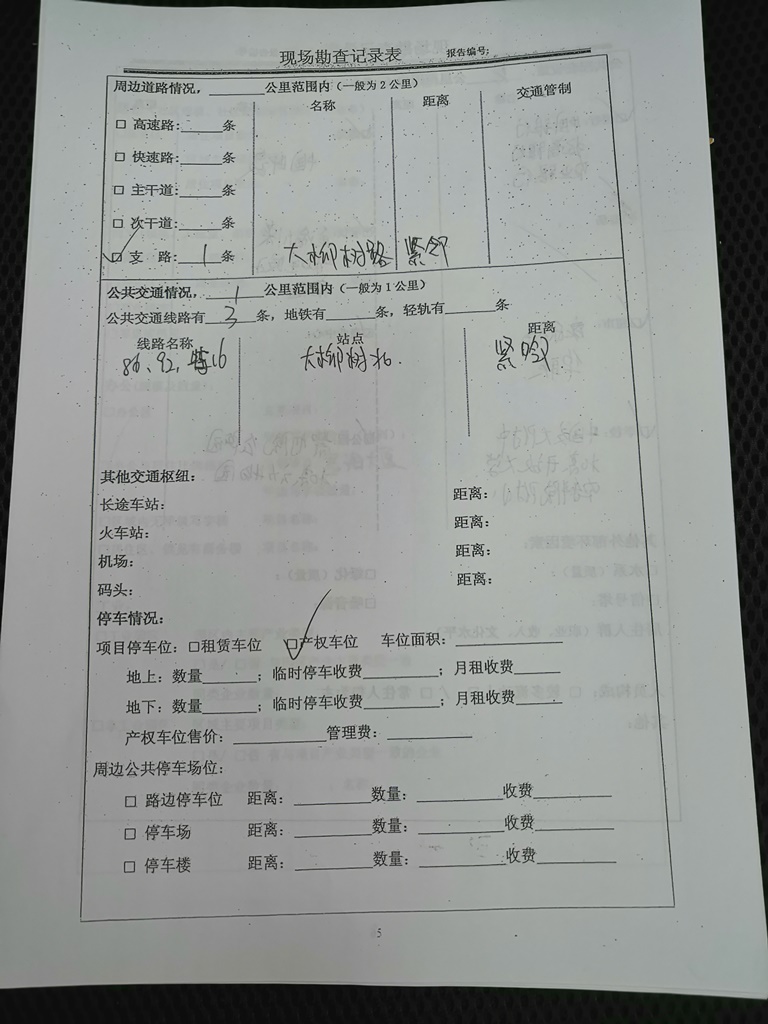 现场勘查记录表 报告编号:
周边道路情况，______公里范围内（一般为2公里）
名称 距离 交通管制
□ 高速路:_____条
□ 快速路:_____条
□ 主干道:_____条
□ 次干道:_____条
☑ 支 路: 1 条 大柳树路 紧邻
公共交通情况， 1 公里范围内（一般为1公里）
公共交通线路有 3 条，地铁有______条，轻轨有______条
线路名称 站点 距离
86、92、特16 大柳树北. 紧邻
其他交通枢纽：
长途车站： 距离：
火车站： 距离：
机场： 距离：
码头： 距离：
停车情况：
项目停车位：□租赁车位 ☑产权车位 车位面积：____________
地上：数量______；临时停车收费________；月租收费_____
地下：数量______；临时停车收费________；月租收费_____
产权车位售价：___________管理费：_________
周边公共停车场位：
□ 路边停车位 距离：________数量：_________收费________
□ 停车场 距离：________数量：_________收费________
□ 停车楼 距离：________数量：_________收费________
5